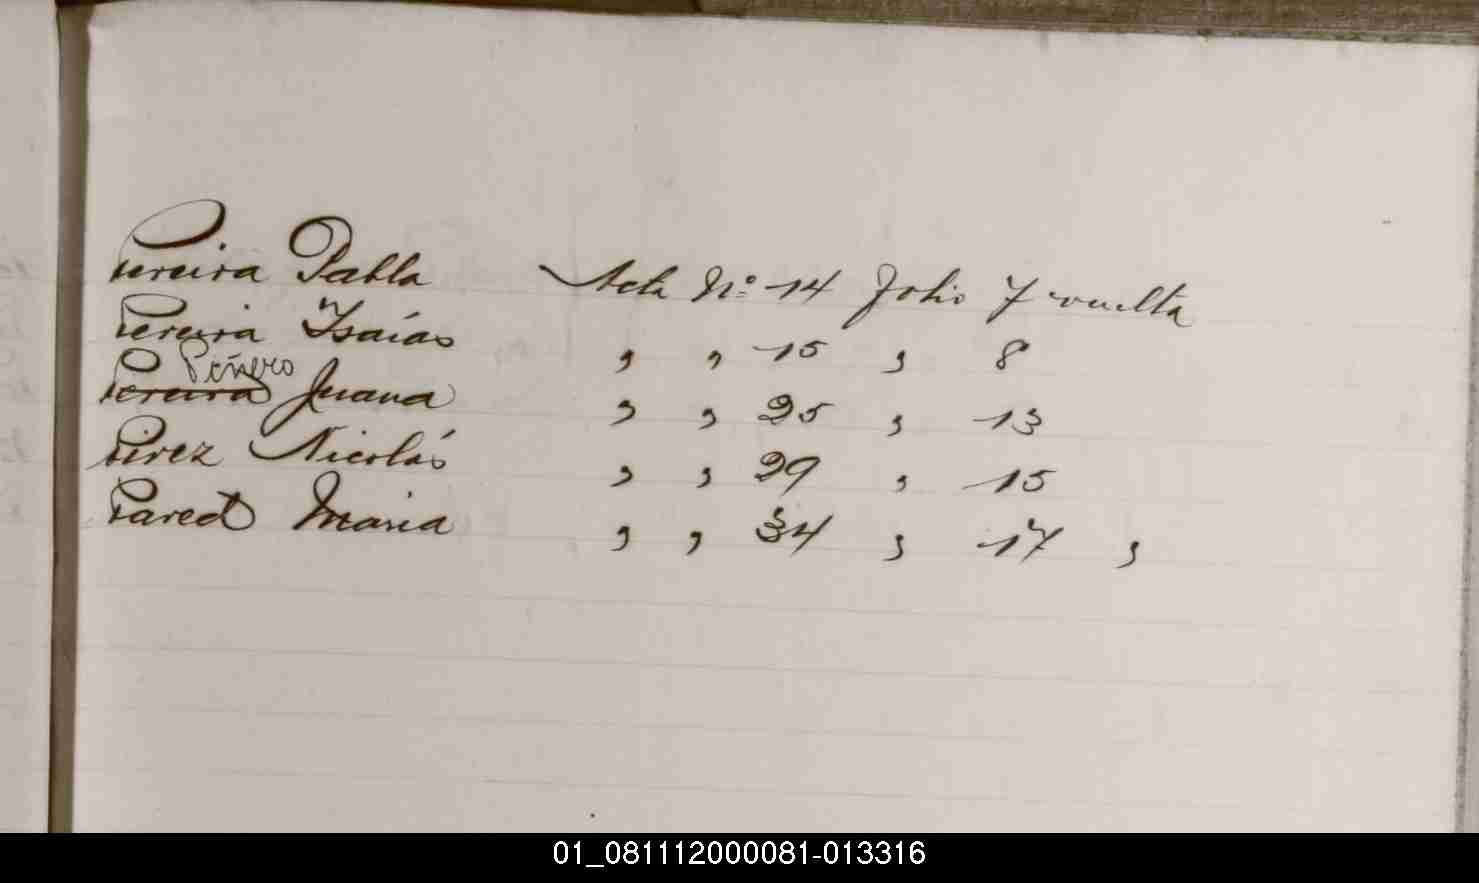 Pereira Pabla Acta Nº 14 Folio 7 vuelta
Pereira Isaías , , 15 , 8
Peñero
Pereira Juana , , 25 , 13
Pirez Nicolás , , 29 , 15
Pared María , , 34 , 17 ,
01_081112000081-013316